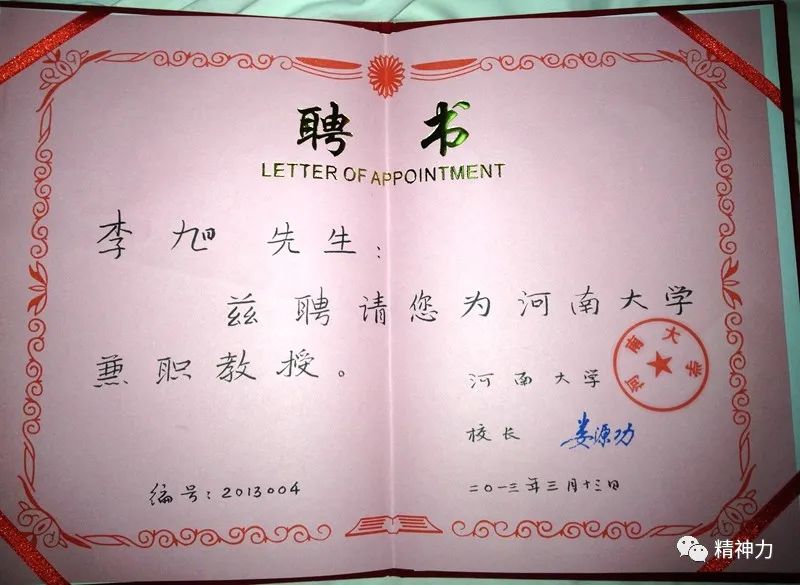 聘 书
LETTER OF APPOINTMENT
李旭先生：
兹聘请您为河南大学
兼职教授。
河南大学
河南大学
校长 娄源功
编号：2013004
二〇一三年三月十三日
精神力